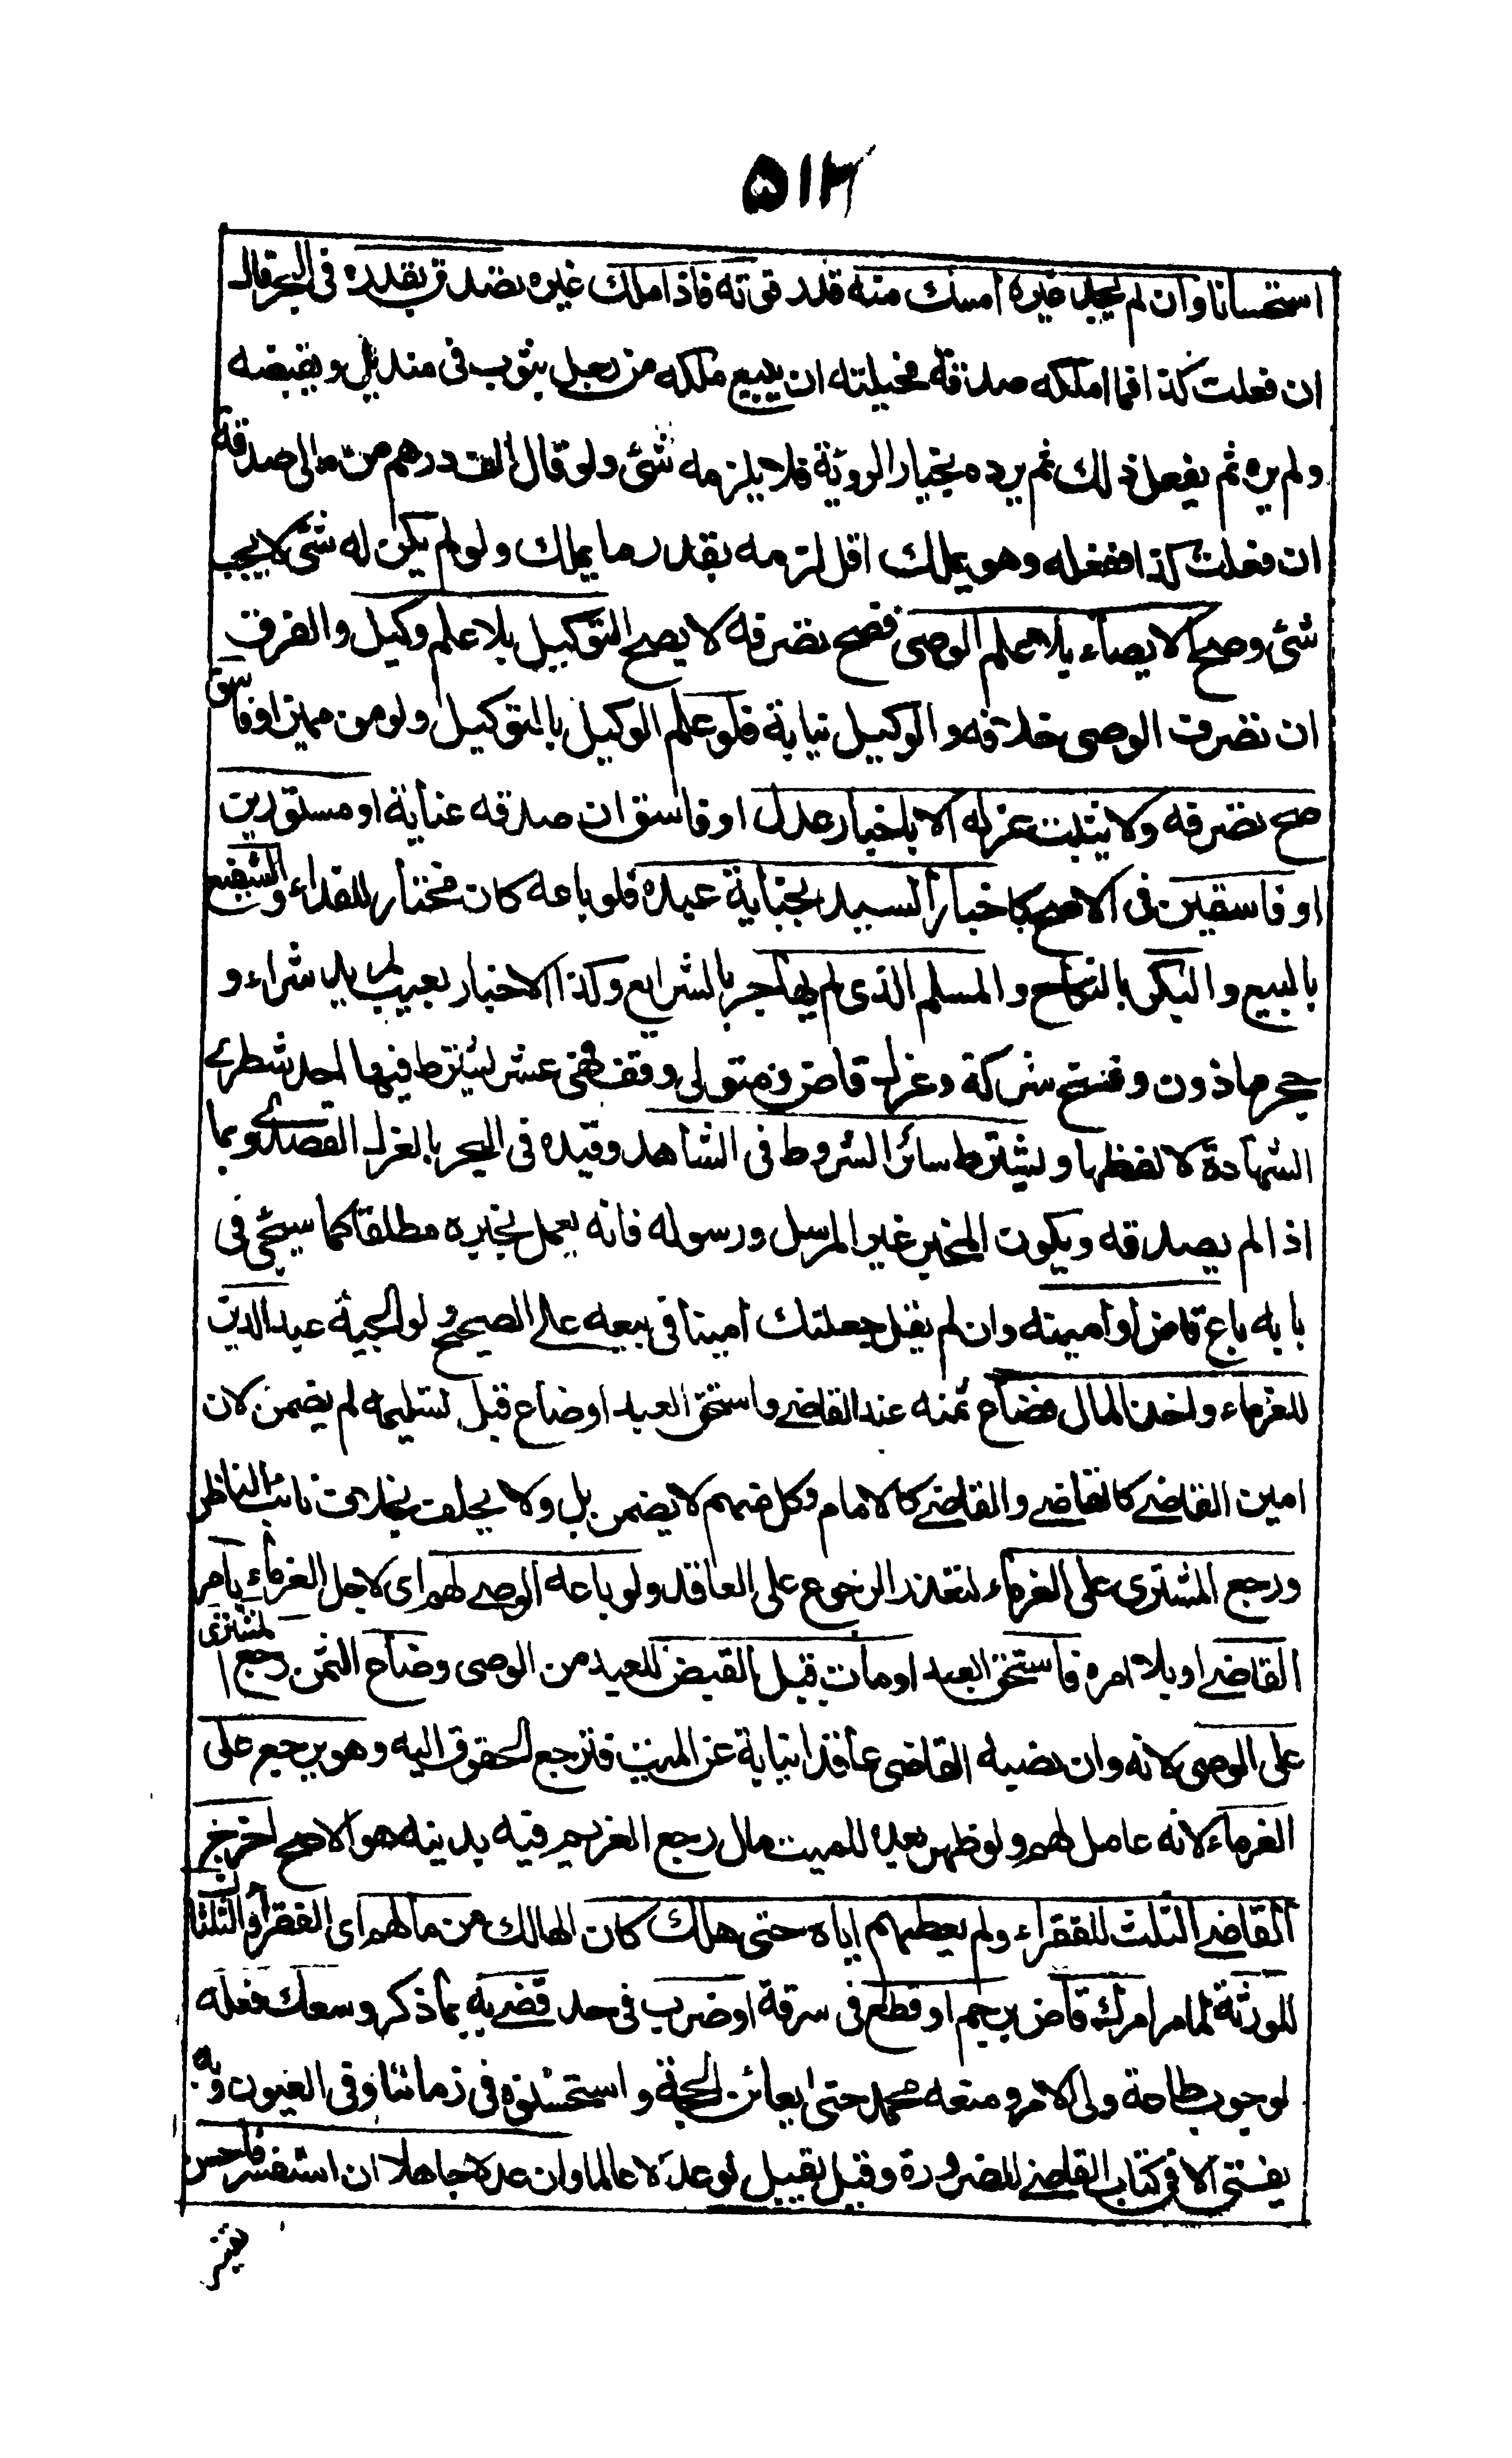 ۵۱۳
استحسانا وان لم يجد غيره امسك منه قدر قوته فاذا ملك غيره تصدق بقدره فى البحر قال
ان فعلت كذا فما املكه صدقة فحيلته ان يبيع ملكه من رجل بثوب فى منديل ويقبضه
ولم يره ثم يفعل ذلك ثم يرده بخيار الروية فلا يلزمه شئ ولو قال الف درهم من مالى صدقة
ان فعلت كذا ففعله وهو يملك اقل لزمه بقدر ما يملك ولو لم يكن له شئ لا يجب
شئ وصح الايصاء بلا علم الوصى فصح تصرفه لا يصح التوكيل بلا علم وكيل والفرق
ان تصرف الوصى خلافة والوكيل نيابة فلو علم الوكيل بالتوكيل ولو من مميز او فاسق
صح تصرفه ولا يثبت عزله الا باخبار عدل او فاسق ان صدقه عناية او مستورين
او فاسقين فى الاصح كاخبار السيد بجناية عبده فلو باعه كان مختارا للفداء والشفيع
بالبيع والبكر بالنكاح والمسلم الذى لم يهاجر بالشرايع وكذا الاخبار بعيب لمريد شراء و
حجر ماذون وفسخ شركة وعزل قاض ومتولى وقف فهى عشر يشترط فيها احد شطرى
الشهادة لا لفظها ويشترط سائر الشروط فى الشاهد وقيده فى البحر بالعزل القصدى وبما
اذا لم يصدقه ويكون المخبر غير المرسل ورسوله فانه يعمل بخبره مطلقا كما سيجئ فى
بابه باع قاض او امينه وان لم يقل جعلتك امينا فى بيعه على الصحيح ولوالجية عبد الدين
للغرماء واخذ المال فضاع ثمنه عند القاضى واستحق العبد او ضاع قبل تسليمه لم يضمن لان
امين القاضى كالقاضى والقاضى كالامام وكل منهم لا يضمن بل ولا يحلف بخلاف نائب الناظر
ورجع المشترى على الغرماء لتعذر الرجوع على العاقد ولو باعه الوصى لهم اى لاجل الغرماء بامر
القاضى او بلا امره فاستحق العبد او مات قبل القبض للعبد من الوصى وضاع الثمن رجع المشترى
على الوصى لانه وان نصبه القاضى عاقدا نيابة عن الميت فترجع الحقوق اليه وهو يرجع على
الغرماء لانه عامل لهم ولو ظهر بعده للميت مال رجع الغريم فيه بدينه هو الاصح اخرج
القاضى الثلث للفقراء ولم يعطهم اياه حتى هلك كان الهالك من مالهم اى الفقراء والثلثان
للورثة لما مر امرك قاض برجم او قطع فى سرقة او ضرب فى حد قضى به بما ذكر وسعك فعله
لوجوب طاعة ولى الامر ومنعه محمد حتى يعائن الحجة واستحسنوه فى زماننا وفى العيون وبه
يفتى الا فى كتاب القاضى للضرورة وقيل يقبل لو عدلا عالما وان عدلا جاهلا ان استفسر فاحسن